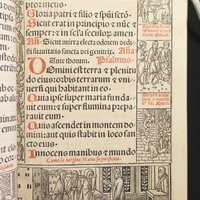 ptor meus:
Gloria patri & filio & spūi scō
Sicut erat in principio & nunc &
semper: & in secula seculor̄. amen
Añ. Sicut mirra electa odorem dedi
suauitatis sancta dei genitrix. Aña
Ante thorum. Psalmus.
Domini est terra & plenitu
do eius: orbis terrarum & vni
uersi qui habitant in eo:
Quia ipse super maria funda
uit eum: & super flumina prepa
rauit eum.
Quis ascendet in montem do
mini: aut quis stabit in loco san
cto eius:
Innocens manibus & mundo